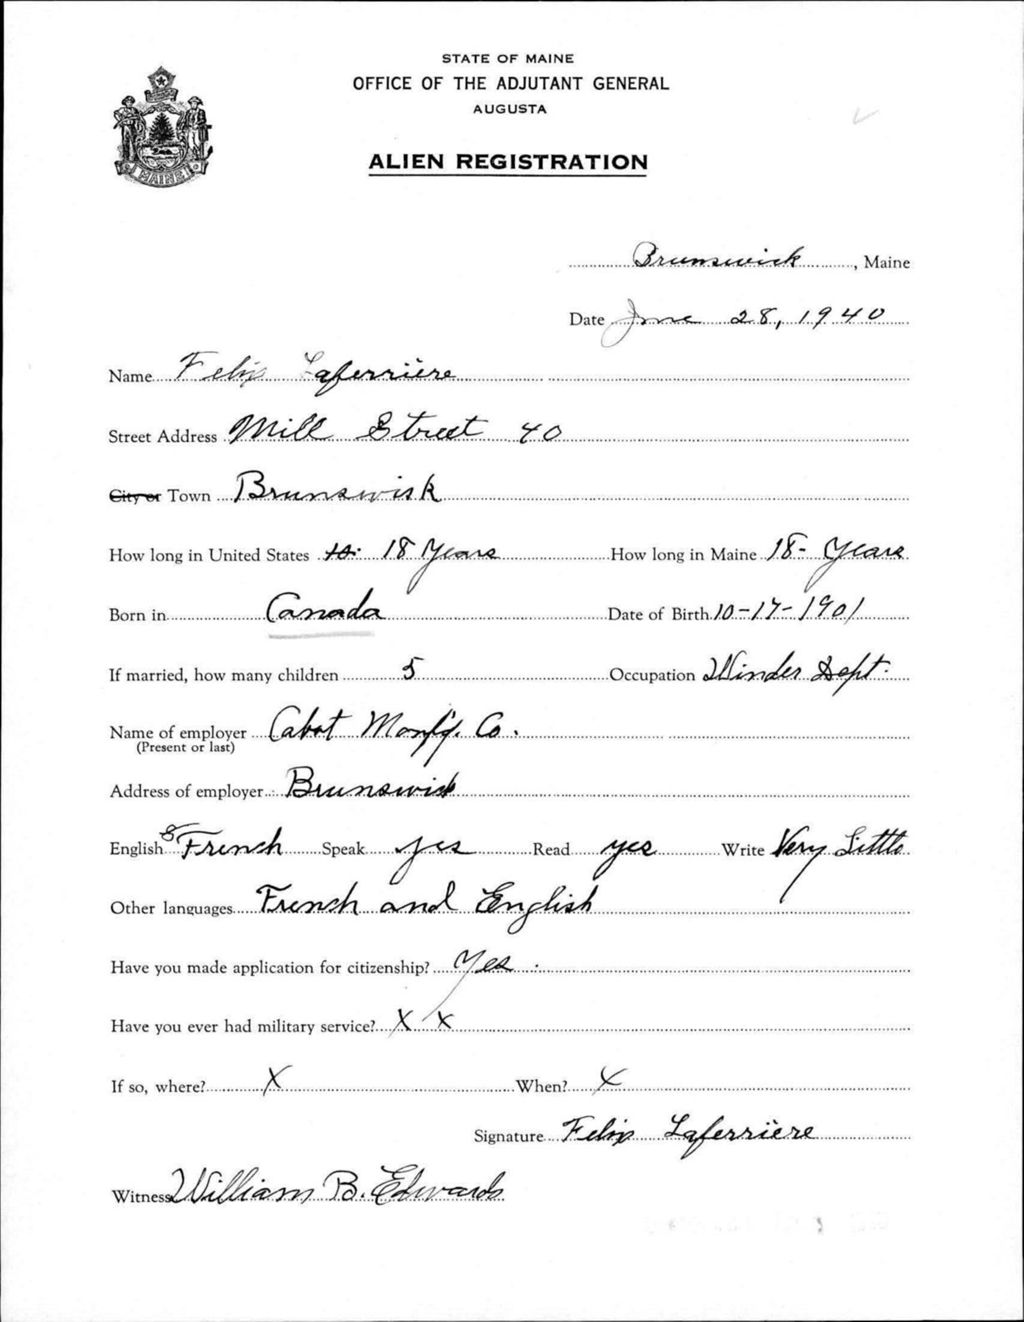 STATE OF MAINE
OFFICE OF THE ADJUTANT GENERAL
AUGUSTA
ALIEN REGISTRATION
MAINE
Brunswick, Maine
Date June 28, 1940
Name Felix Laferrière
Street Address Mill Street 40
City or Town Brunswick
How long in United States 18 Years How long in Maine 18- Years
Born in Canada Date of Birth 10-17-1901
If married, how many children 5 Occupation Winder Dept.
Name of employer Cabot Manf'g. Co.
(Present or last)
Address of employer Brunswick
English & French Speak yes Read yes Write Very Little
Other languages French and English
Have you made application for citizenship? Yes.
Have you ever had military service? X X
If so, where? X When? X
Signature Felix Laferrière
Witness William B. Edwards